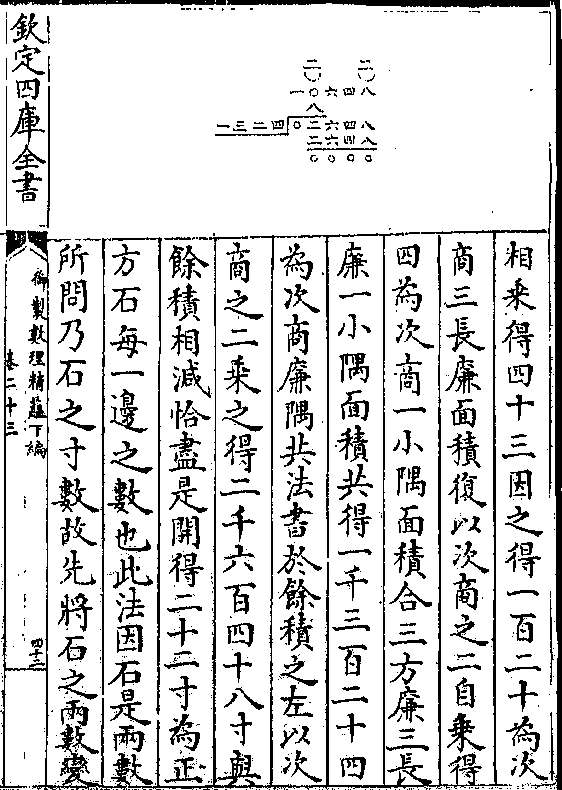 二　二
〇　〇
一〇六四八
八
一三二四　〇二六四八
二六四八
〇〇〇〇
相乘得四十三因之得一百二十為次
商三長廉面積復以次商之二自乘得
四為次商一小隅面積合三方廉三長
廉一小隅面積共得一千三百二十四
為次商廉隅共法書於餘積之左以次
商之二乘之得二千六百四十八寸與
餘積相減恰盡是開得二十二寸為正
方石每一邊之數也此法因石是兩數
所問乃石之寸數故先將石之兩數變
欽定四庫全書
御製數理精蘊下編
卷二十三
四十三